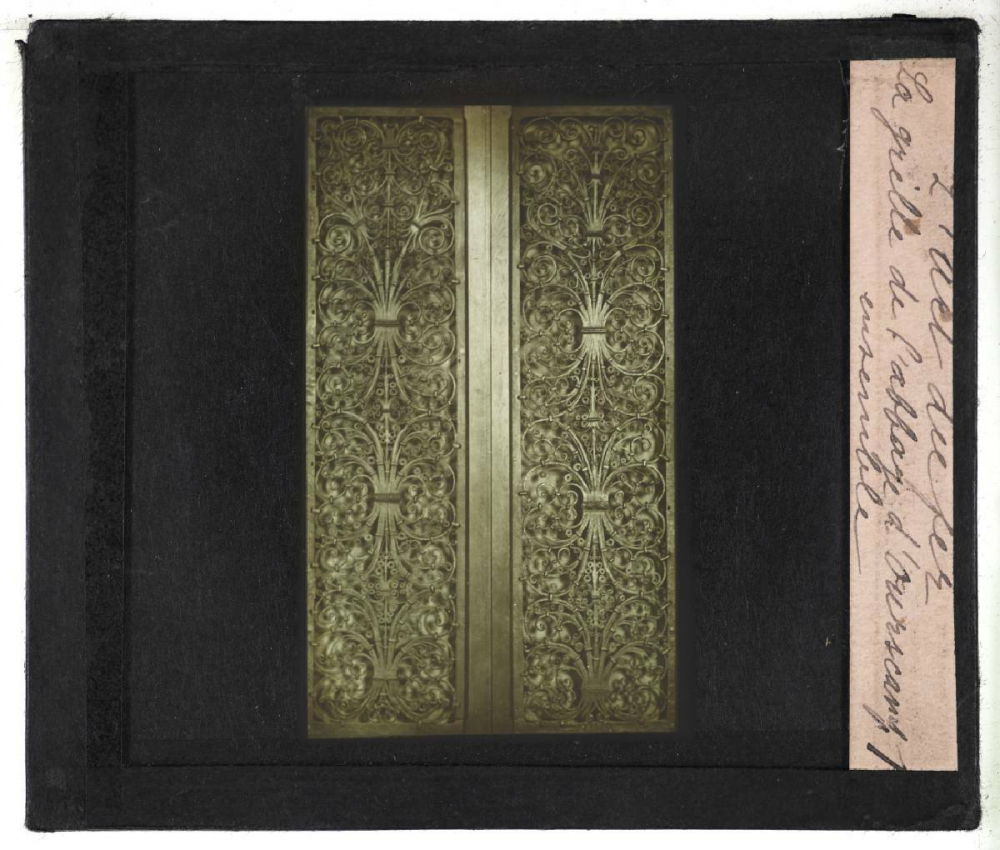 L'art du fer
La grille de l'abbaye d'Ourscamp
ensemble